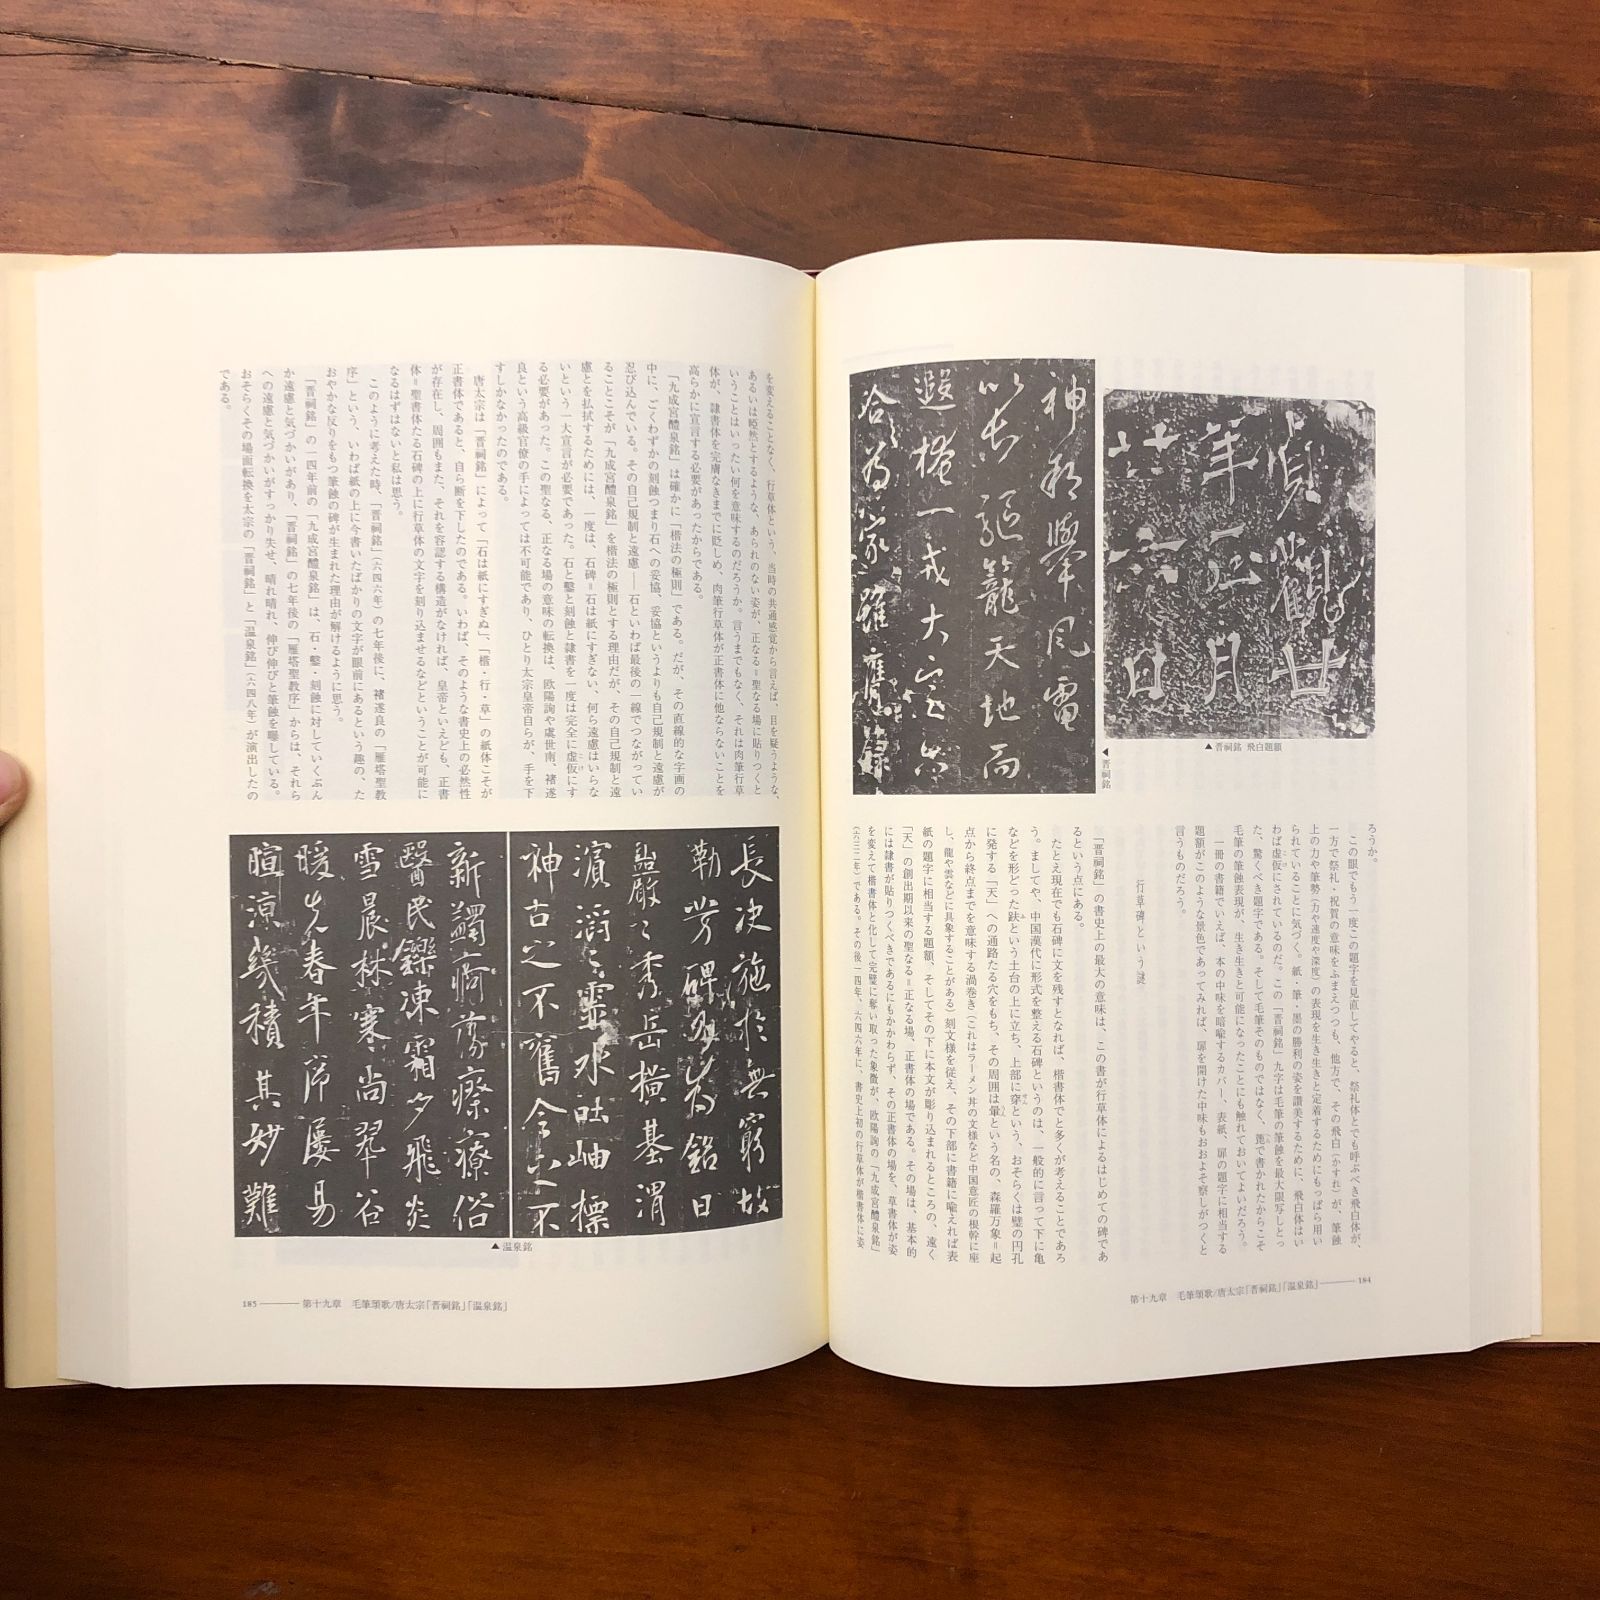 貞觀廿
年正月
廿六日
▲晋祠銘 飛白題額
神邦擧風電
以長驅籠天地而
遐捲一戎大定六
合爲家雖膺籙
▲晋祠銘
ろうか。
この眼でもう一度この題字を見直してやると、祭礼体とでも呼ぶべき飛白体が、
一方で祭礼・祝賀の意味をふまえつつも、他方で、その飛白(かすれ)が、筆蝕
上の力や筆勢(力や速度や深度)の表現を生き生きと定着するためにもっぱら用い
られていることに気づく。紙・筆・墨の勝利の姿を讃美するために、飛白体はい
わば虚仮にされているのだ。この「晋祠銘」九字は毛筆の筆蝕を最大限写しとっ
た、驚くべき題字である。そして毛筆そのものではなく、篦で書かれたからこそ
毛筆の筆蝕表現が、生き生きと可能になったことにも触れておいてよいだろう。
一冊の書籍でいえば、本の中味を暗喩するカバー、表紙、扉の題字に相当する
題額がこのような景色であってみれば、扉を開けた中味もおおよそ察しがつくと
言うものだろう。
行草碑という謎
「晋祠銘」の書史上の最大の意味は、この書が行草体によるはじめての碑であ
るという点にある。
たとえ現在でも石碑に文を残すとなれば、楷書体でと多くが考えることであろ
う。ましてや、中国漢代に形式を整える石碑というのは、一般的に言って下に亀
などを形どった趺という土台の上に立ち、上部に穿という、おそらくは璧の円孔
に発する「天」への通路たる穴をもち、その周囲は暈という名の、森羅万象=起
点から終点までを意味する渦巻き(これはラーメン丼の文様など中国意匠の根幹に座
し、龍や雲などに具象することがある)刻文様を従え、その下部に書籍に喩えれば表
紙の題字に相当する題額、そしてその下に本文が彫り込まれるところの、遠く
「天」の創出期以来の聖なる=正なる場、正書体の場である。その場は、基本的
には隷書が貼りつくべきであるにもかかわらず、その正書体の場を、草書体が姿
を変えて楷書体と化して完璧に奪い取った象徴が、欧陽詢の「九成宮醴泉銘」
(六三二年)である。その後一四年、六四六年に、書史上初の行草体が楷書体に姿
第十九章 毛筆頌歌/唐太宗「晋祠銘」「温泉銘」——184
を変えることなく、行草体という、当時の共通感覚から言えば、目を疑うような、
あるいは唖然とするような、あられのない姿が、正なる=聖なる場に貼りつくと
いうことはいったい何を意味するのだろうか。言うまでもなく、それは肉筆行草
体が、隷書体を完膚なきまでに貶しめ、肉筆行草体が正書体に他ならないことを
高らかに宣言する必要があったからである。
「九成宮醴泉銘」は確かに「楷法の極則」である。だが、その直線的な字画の
中に、ごくわずかの刻蝕つまり石への妥協、妥協というよりも自己規制と遠慮が
忍び込んでいる。その自己規制と遠慮——石といわば最後の一線でつながってい
ることこそが「九成宮醴泉銘」を楷法の極則とする理由だが、その自己規制と遠
慮とを払拭するためには、一度は、石碑=石は紙にすぎない、何ら遠慮はいらな
いという一大宣言が必要であった。石と鑿と刻蝕と隷書を一度は完全に虚仮にす
る必要があった。この聖なる、正なる場の意味の転換は、欧陽詢や虞世南、褚遂
良という高級官僚の手によっては不可能であり、ひとり太宗皇帝自らが、手を下
すしかなかったのである。
唐太宗は「晋祠銘」によって「石は紙にすぎぬ」、「楷・行・草」の紙体こそが
正書体であると、自ら断を下したのである。いわば、そのような書史上の必然性
が存在し、周囲もまた、それを容認する構造がなければ、皇帝といえども、正書
体=聖書体たる石碑の上に行草体の文字を刻り込ませるなどということが可能に
なるはずはないと私は思う。
このように考えた時、「晋祠銘」(六四六年)の七年後に、褚遂良の「雁塔聖教
序」という、いわば紙の上に今書いたばかりの文字が眼前にあるという趣の、た
おやかな反りをもつ筆蝕の碑が生まれた理由が解けるように思う。
「晋祠銘」の一四年前の「九成宮醴泉銘」は、石・鑿・刻蝕に対していくぶん
か遠慮と気づかいがあり、「晋祠銘」の七年後の「雁塔聖教序」からは、それら
への遠慮と気づかいがすっかり失せ、晴れ晴れ、伸び伸びと筆蝕を曝している。
おそらくその場面転換を太宗の「晋祠銘」と「温泉銘」(六四八年)が演出したの
である。
長決施於無窮故
勒芳碑乃爲銘曰
巖々秀岳橫基渭
濱滔々靈水吐岫標
神古之不舊今之不
新蠲痾蕩瘵療俗
醫民鑠凍霜夕飛炎
雪晨林寒尚翠谷
暖先春年序屢易
暄涼幾積其妙難
▲温泉銘
185——第十九章 毛筆頌歌/唐太宗「晋祠銘」「温泉銘」